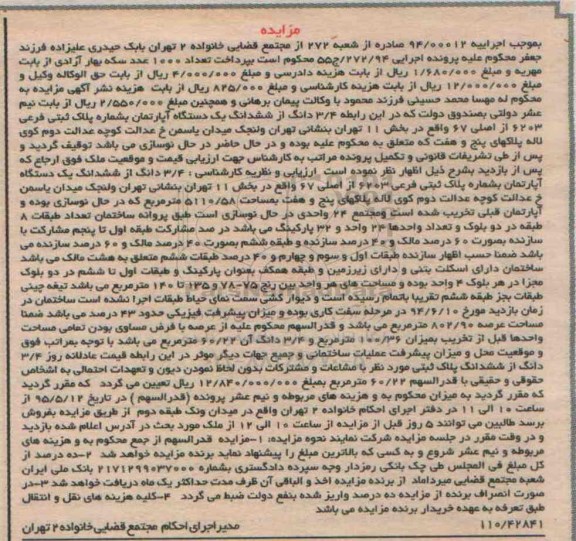 مزایده
بموجب اجراییه ۹۴/۰۰۰۱۲ صادره از شعبه ۲۷۲ از مجتمع قضایی خانواده ۲ تهران بابک حیدری علیزاده فرزند
جعفر محکوم علیه پرونده اجرایی ۲۷۲/۹۴ج۵۵ محکوم است بپرداخت تعداد ۱۰۰۰ عدد سکه بهار آزادی از بابت
مهریه و مبلغ ۱/۶۸۰/۰۰۰ ریال از بابت هزینه دادرسی و مبلغ ۴/۰۰۰/۰۰۰ ریال از بابت حق الوکاله وکیل و
مبلغ ۱۲/۰۰۰/۰۰۰ ریال از بابت هزینه کارشناسی و مبلغ ۸۲۵/۰۰۰ ریال از بابت هزینه نشر آگهی مزایده به
محکوم له مهسا محمد حسینی فرزند محمود با وکالت پیمان برهانی و همچنین مبلغ ۲/۵۵۰/۰۰۰ ریال از بابت نیم
عشر دولتی بصندوق دولت که در این رابطه ۳/۴ دانگ از ششدانگ یک دستگاه آپارتمان بشماره پلاک ثبتی فرعی
۶۲۰۳ از اصلی ۶۷ واقع در بخش ۱۱ تهران بنشانی تهران ولنجک میدان یاسمن خ عدالت کوچه عدالت دوم کوی
لاله پلاکهای پنج و هفت که متعلق به محکوم علیه بوده و در حال حاضر در حال نوسازی می باشد توقیف گردید و
پس از طی تشریفات قانونی و تکمیل پرونده مراتب به کارشناس جهت ارزیابی قیمت و موقعیت ملک فوق ارجاع که
پس از بازدید بشرح ذیل اظهار نظر نموده است . ارزیابی و نظریه کارشناسی : ۳/۴ دانگ از ششدانگ یک دستگاه
آپارتمان بشماره پلاک ثبتی فرعی ۶۲۰۳ از اصلی ۶۷ واقع در بخش ۱۱ تهران بنشانی تهران ولنجک میدان یاسمن
خ عدالت کوچه عدالت دوم کوی لاله پلاکهای پنج و هفت بمساحت ۵۱۱۰/۵۸ مترمربع که در حال نوسازی بوده و
آپارتمان قبلی تخریب شده است ومجتمع ۲۴ واحدی در حال نوسازی است طبق پروانه ساختمان تعداد طبقات ۸
طبقه در دو بلوک و تعداد واحدها ۲۴ واحد و ۳۲ پارکینگ می باشد در صد مشارکت طبقه اول تا پنجم مشارکت با
سازنده بصورت ۶۰ درصد مالک و ۴۰ درصد سازنده و طبقه ششم بصورت ۴۰ درصد مالک و ۶۰ درصد سازنده می
باشد ضمنا حسب اظهار سازنده طبقات اول و سوم و چهارم و ۴۰ درصد طبقات ششم متعلق به هشت مالک می باشد
ساختمان دارای اسکلت بتنی و دارای زیرزمین و طبقه همکف بعنوان پارکینگ و طبقات اول تا ششم در دو بلوک
مجزا در هر بلوک ۴ واحد بوده و مساحت های هر واحد بین رنج ۷۵-۷۸ و۱۳۵ تا ۱۴۰ مترمربع می باشد تیغه چینی
طبقات بجز طبقه ششم تقریبا باتمام رسیده است و دیوار کشی سمت نمای حیاط طبقات اجرا نشده است ساختمان در
زمان بازدید مورخ ۹۴/۶/۱۰ در مرحله سفت کاری بوده و میزان پیشرفت فیزیکی حدود ۴۳ درصد می باشد ضمنا
مساحت عرصه ۸۰۲/۹۰ مترمربع می باشد و قدرالسهم محکوم علیه از عرصه با فرض مساوی بودن تمامی مساحت
واحدها قبل از تخریب بمیزان ۱۰۰/۳۶ مترمربع و ۳/۴ دانگ آن ۶۰/۲۲ مترمربع می باشد با توجه بمراتب فوق
و موقعیت محل و میزان پیشرفت عملیات ساختمانی و جمیع جهات دیگر موثر در این رابطه قیمت عادلانه روز ۳/۴
دانگ از ششدانگ پلاک ثبتی مورد نظر با مشاعات و مشترکات بدون لحاظ نمودن دیون و تعهدات احتمالی به اشخاص
حقوقی و حقیقی با قدرالسهم ۶۰/۲۲ مترمربع بمبلغ ۱۲/۸۴۰/۰۰۰/۰۰۰ ریال تعیین می گردد که مقرر گردید
که مقرر گردید به میزان محکوم به و هزینه های مربوطه و نیم عشر پرونده (قدرالسهم ) در تاریخ ۹۵/۵/۱۲ از
ساعت ۱۰ الی ۱۱ در دفتر اجرای احکام خانواده ۲ تهران واقع در میدان ونک طبقه دوم از طریق مزایده بفروش
برسد طالبین می توانند ۵ روز قبل از مزایده از ساعت ۱۰ الی ۱۲ از ملک مورد بحث در آدرس اعلام شده بازدید
و در وقت مقرر در جلسه مزایده شرکت نمایند نحوه مزایده: ۱-مزایده قدرالسهم از جمع محکوم به و هزینه های
مربوطه و نیم عشر شروع و به کسی که بالاترین مبلغ را پیشنهاد نماید برنده مزایده خواهد شد ۲-ده درصد از
کل مبلغ فی المجلس طی چک بانکی رمزدار وجه سپرده دادگستری بشماره ۲۱۷۱۲۹۹۰۳۷۰۰۰ بانک ملی ایران
شعبه مجتمع قضایی میرداماد از برنده مزایده اخذ و الباقی آن ظرف مدت حداکثر یک ماه دریافت خواهد شد ۳-در
صورت انصراف برنده از مزایده ده درصد واریز شده بنفع دولت ضبط می گردد ۴-کلیه هزینه های نقل و انتقال
طبق تعرفه به عهده خریدار برنده مزایده می باشد
۱۱۰/۴۲۸۴۱ مدیر اجرای احکام مجتمع قضایی خانواده ۲ تهران